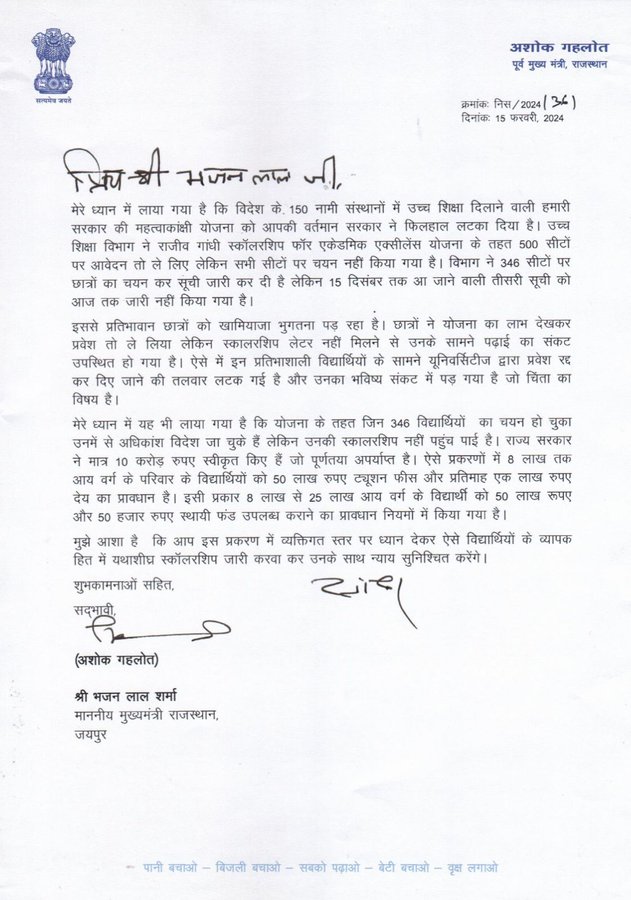 सत्यमेव जयते
अशोक गहलोत
पूर्व मुख्य मंत्री, राजस्थान
क्रमांकः निस/2024(36)
दिनांकः 15 फरवरी, 2024
प्रिय श्री भजन लाल जी,
मेरे ध्यान में लाया गया है कि विदेश के 150 नामी संस्थानों में उच्च शिक्षा दिलाने वाली हमारी
सरकार की महत्वाकांक्षी योजना को आपकी वर्तमान सरकार ने फिलहाल लटका दिया है। उच्च
शिक्षा विभाग ने राजीव गांधी स्कॉलरशिप फॉर एकेडमिक एक्सीलेंस योजना के तहत 500 सीटों
पर आवेदन तो ले लिए लेकिन सभी सीटों पर चयन नहीं किया गया है। विभाग ने 346 सीटों पर
छात्रों का चयन कर सूची जारी कर दी है लेकिन 15 दिसंबर तक आ जाने वाली तीसरी सूची को
आज तक जारी नहीं किया गया है।
इससे प्रतिभावान छात्रों को खामियाजा भुगतना पड़ रहा है। छात्रों ने योजना का लाभ देखकर
प्रवेश तो ले लिया लेकिन स्कालरशिप लेटर नहीं मिलने से उनके सामने पढ़ाई का संकट
उपस्थित हो गया है। ऐसे में इन प्रतिभाशाली विद्यार्थियों के सामने यूनिवर्सिटीज द्वारा प्रवेश रद्द
कर दिए जाने की तलवार लटक गई है और उनका भविष्य संकट में पड़ गया है जो चिंता का
विषय है।
मेरे ध्यान में यह भी लाया गया है कि योजना के तहत जिन 346 विद्यार्थियों का चयन हो चुका
उनमें से अधिकांश विदेश जा चुके हैं लेकिन उनकी स्कालरशिप नहीं पहुंच पाई है। राज्य सरकार
ने मात्र 10 करोड़ रुपए स्वीकृत किए हैं जो पूर्णतया अपर्याप्त है। ऐसे प्रकरणों में 8 लाख तक
आय वर्ग के परिवार के विद्यार्थियों को 50 लाख रुपए ट्यूशन फीस और प्रतिमाह एक लाख रुपए
देय का प्रावधान है। इसी प्रकार 8 लाख से 25 लाख आय वर्ग के विद्यार्थी को 50 लाख रूपए
और 50 हजार रुपए स्थायी फंड उपलब्ध कराने का प्रावधान नियमों में किया गया है।
मुझे आशा है कि आप इस प्रकरण में व्यक्तिगत स्तर पर ध्यान देकर ऐसे विद्यार्थियों के व्यापक
हित में यथाशीघ्र स्कॉलरशिप जारी करवा कर उनके साथ न्याय सुनिश्चित करेंगे।
शुभकामनाओं सहित,
सद्भावी,
(अशोक गहलोत)
श्री भजन लाल शर्मा
माननीय मुख्यमंत्री राजस्थान,
जयपुर
– पानी बचाओ – बिजली बचाओ – सबको पढ़ाओ – बेटी बचाओ – वृक्ष लगाओ